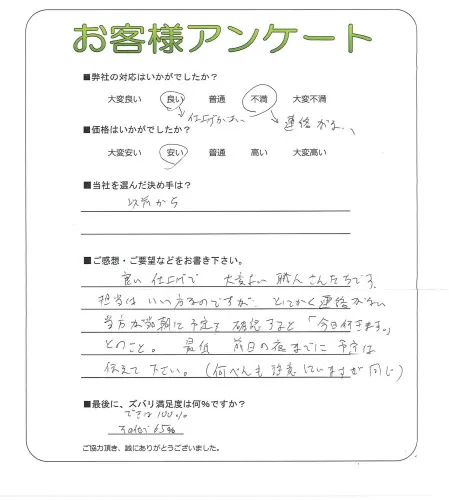 お客様アンケート
■弊社の対応はいかがでしたか?
大変良い 良い 普通 不満 大変不満
仕上げがよい 連絡がない
■価格はいかがでしたか?
大変安い 安い 普通 高い 大変高い
■当社を選んだ決め手は?
以前から
■ご感想・ご要望などをお書き下さい。
良い仕上げで 大変よい職人さんたちです。
担当はいい方なのですが とにかく連絡がない
当方が 朝に予定を確認すると「今日行きます。」
とのこと。最低 前日の夜までに予定は
伝えて下さい。(何べんも注意していますが同じ)
■最後に、ズバリ満足度は何%ですか?
できは100%
65%
ご協力頂き、誠にありがとうございました。